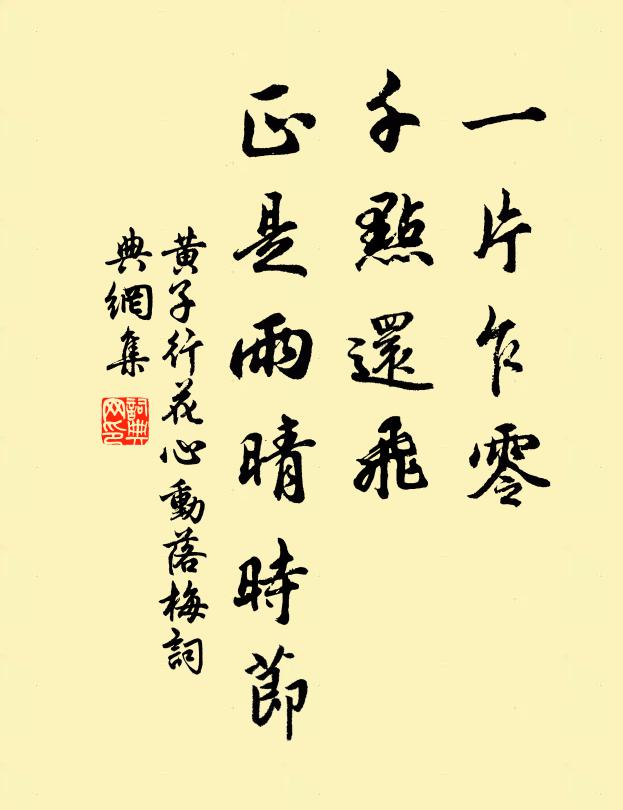 一片乍零
千點還飛
正是雨晴時節
黃子行花心動落梅詞
典網集
詞典網印